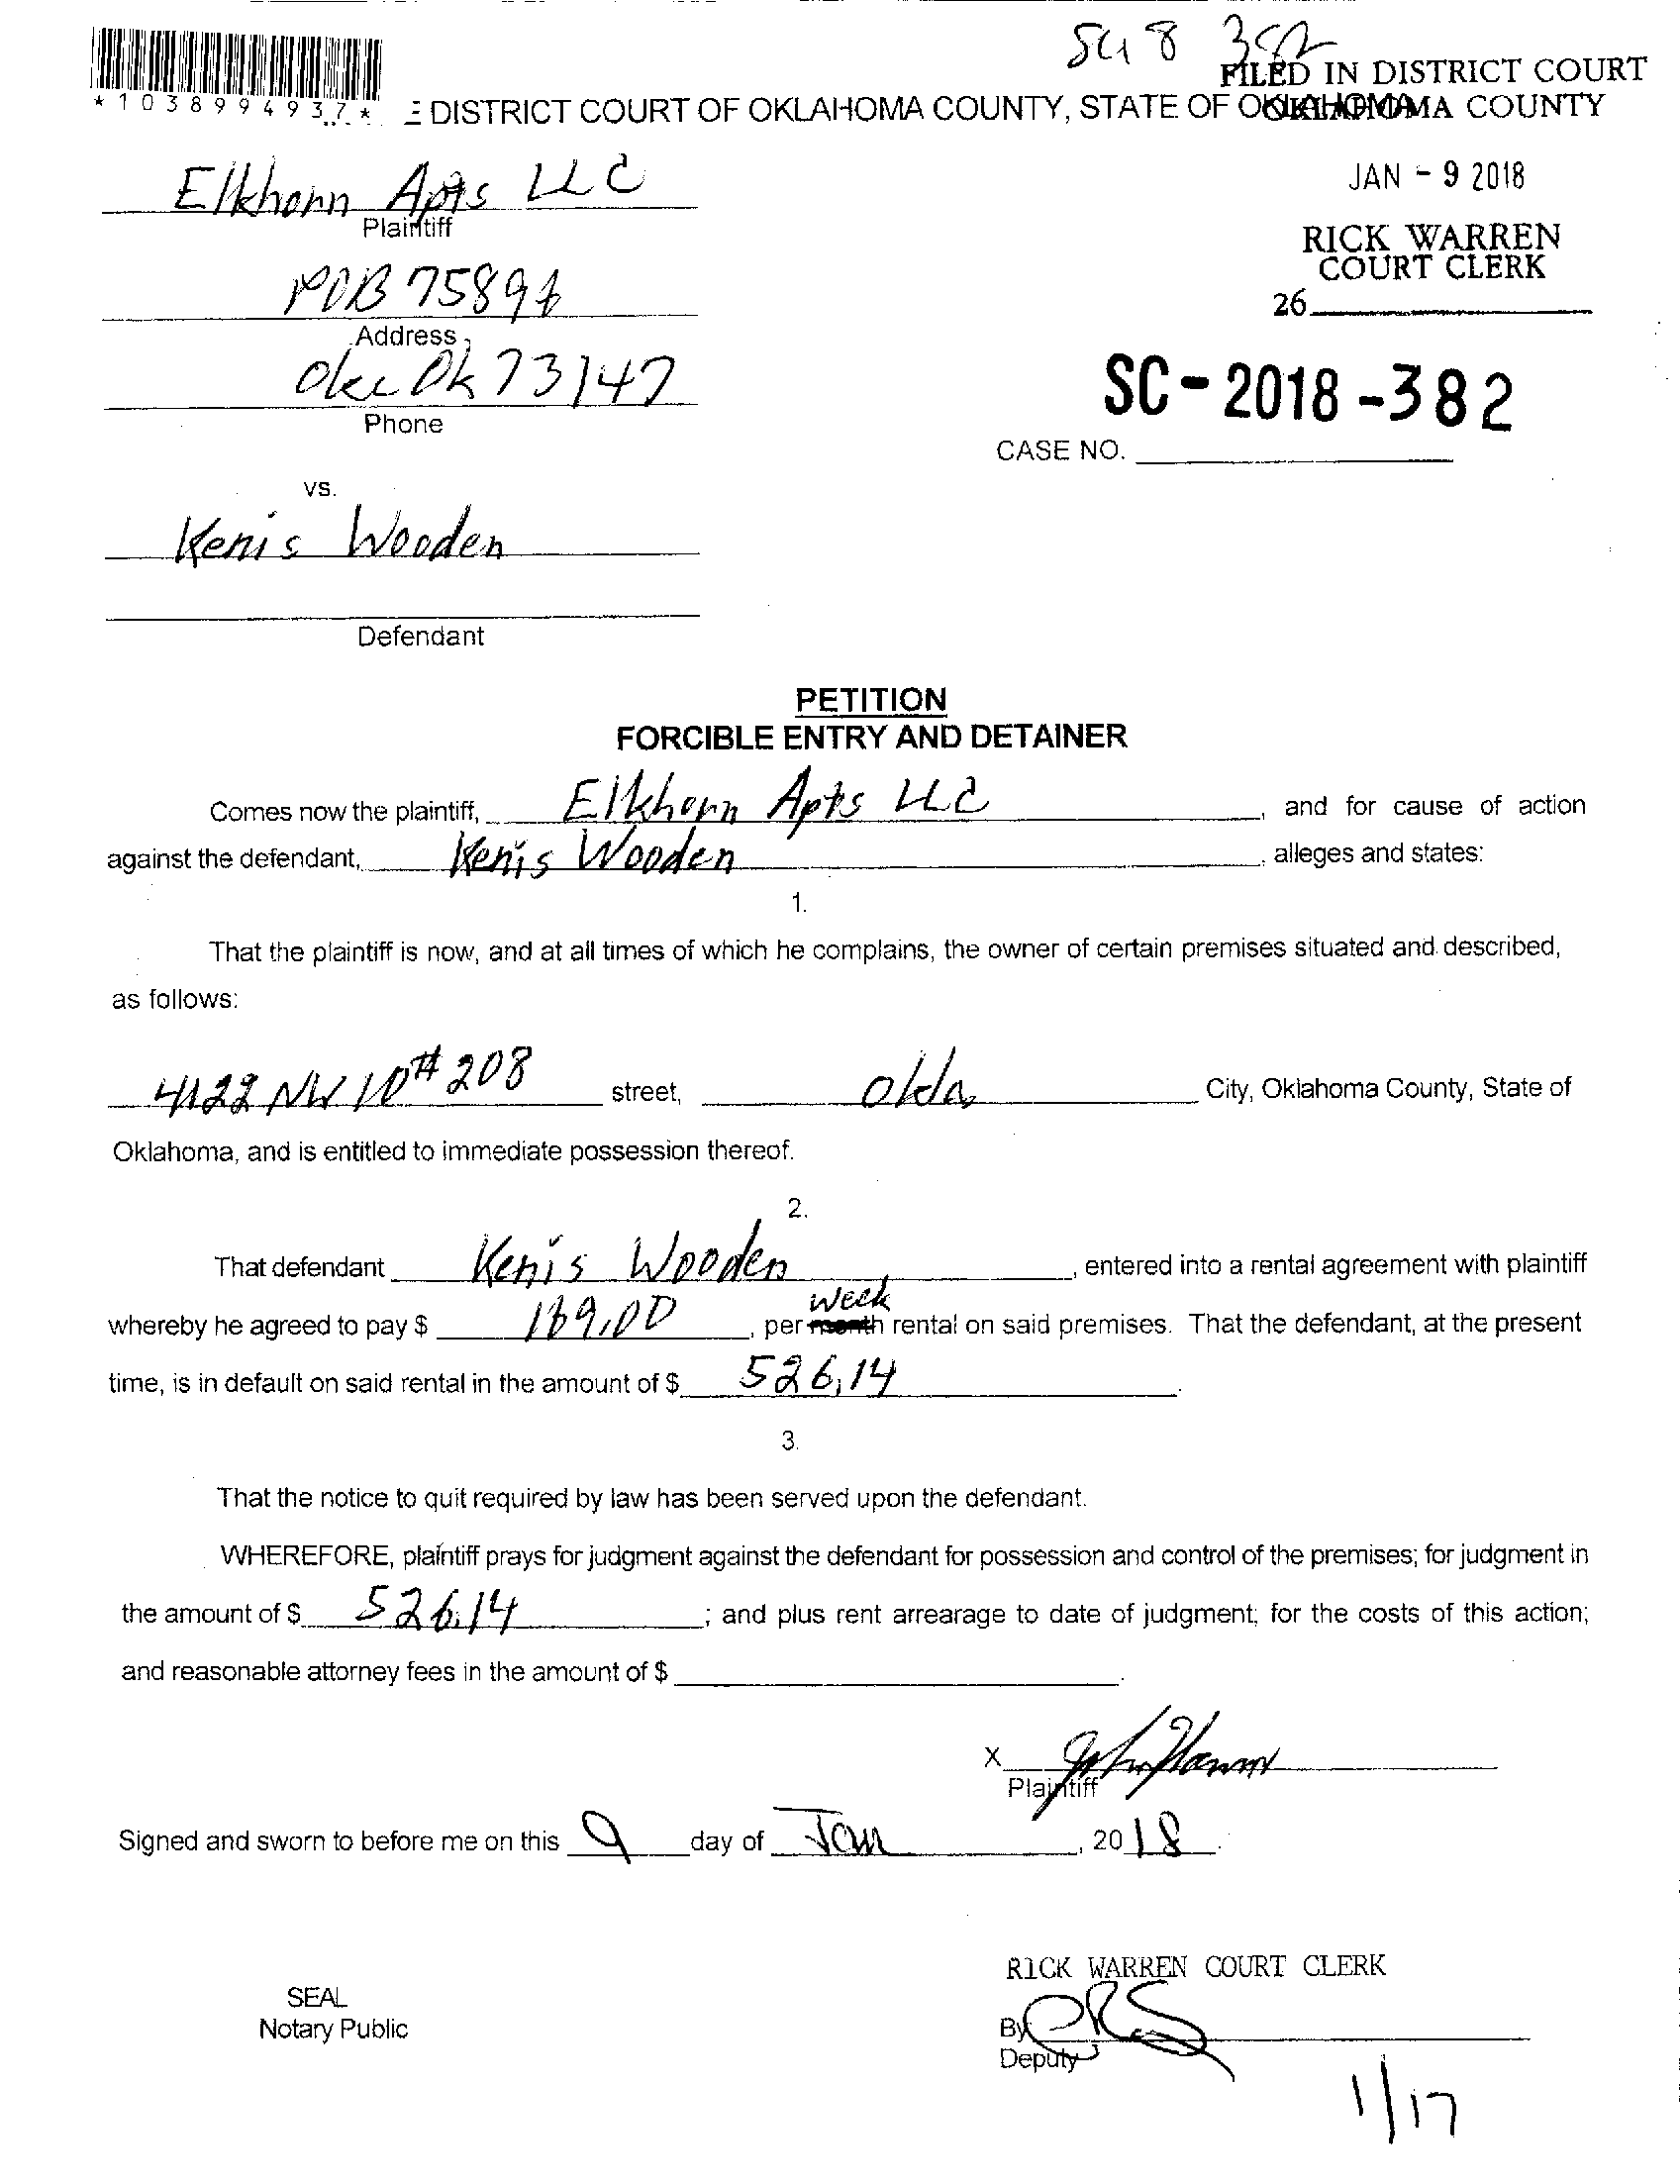 SC18 382
FILED IN DISTRICT COURT
*1038994937* E DISTRICT COURT OF OKLAHOMA COUNTY, STATE OF OKLAHOMA
OKLAHOMA COUNTY
Elkhorn Apts LLC
Plaintiff
JAN - 9 2018
RICK WARREN
COURT CLERK
26
POB 75894
Address
Okc Ok 73147
Phone
SC-2018-382
CASE NO.
vs.
Kenis Wooden
Defendant
PETITION
FORCIBLE ENTRY AND DETAINER
Comes now the plaintiff, Elkhorn Apts LLC, and for cause of action
against the defendant, Kenis Wooden, alleges and states:
1.
That the plaintiff is now, and at all times of which he complains, the owner of certain premises situated and described,
as follows:
4122 NW 10 # 208 street, Okla City, Oklahoma County, State of
Oklahoma, and is entitled to immediate possession thereof.
2.
That defendant Kenis Wooden, entered into a rental agreement with plaintiff
whereby he agreed to pay $ 169.00, per month week rental on said premises. That the defendant, at the present
time, is in default on said rental in the amount of $ 526.14.
3.
That the notice to quit required by law has been served upon the defendant.
WHEREFORE, plaintiff prays for judgment against the defendant for possession and control of the premises; for judgment in
the amount of $ 526.14; and plus rent arrearage to date of judgment; for the costs of this action;
and reasonable attorney fees in the amount of $ .
X
Plaintiff
Signed and sworn to before me on this 9 day of Jan, 2018.
RICK WARREN COURT CLERK
SEAL
Notary Public
By
Deputy
1/17